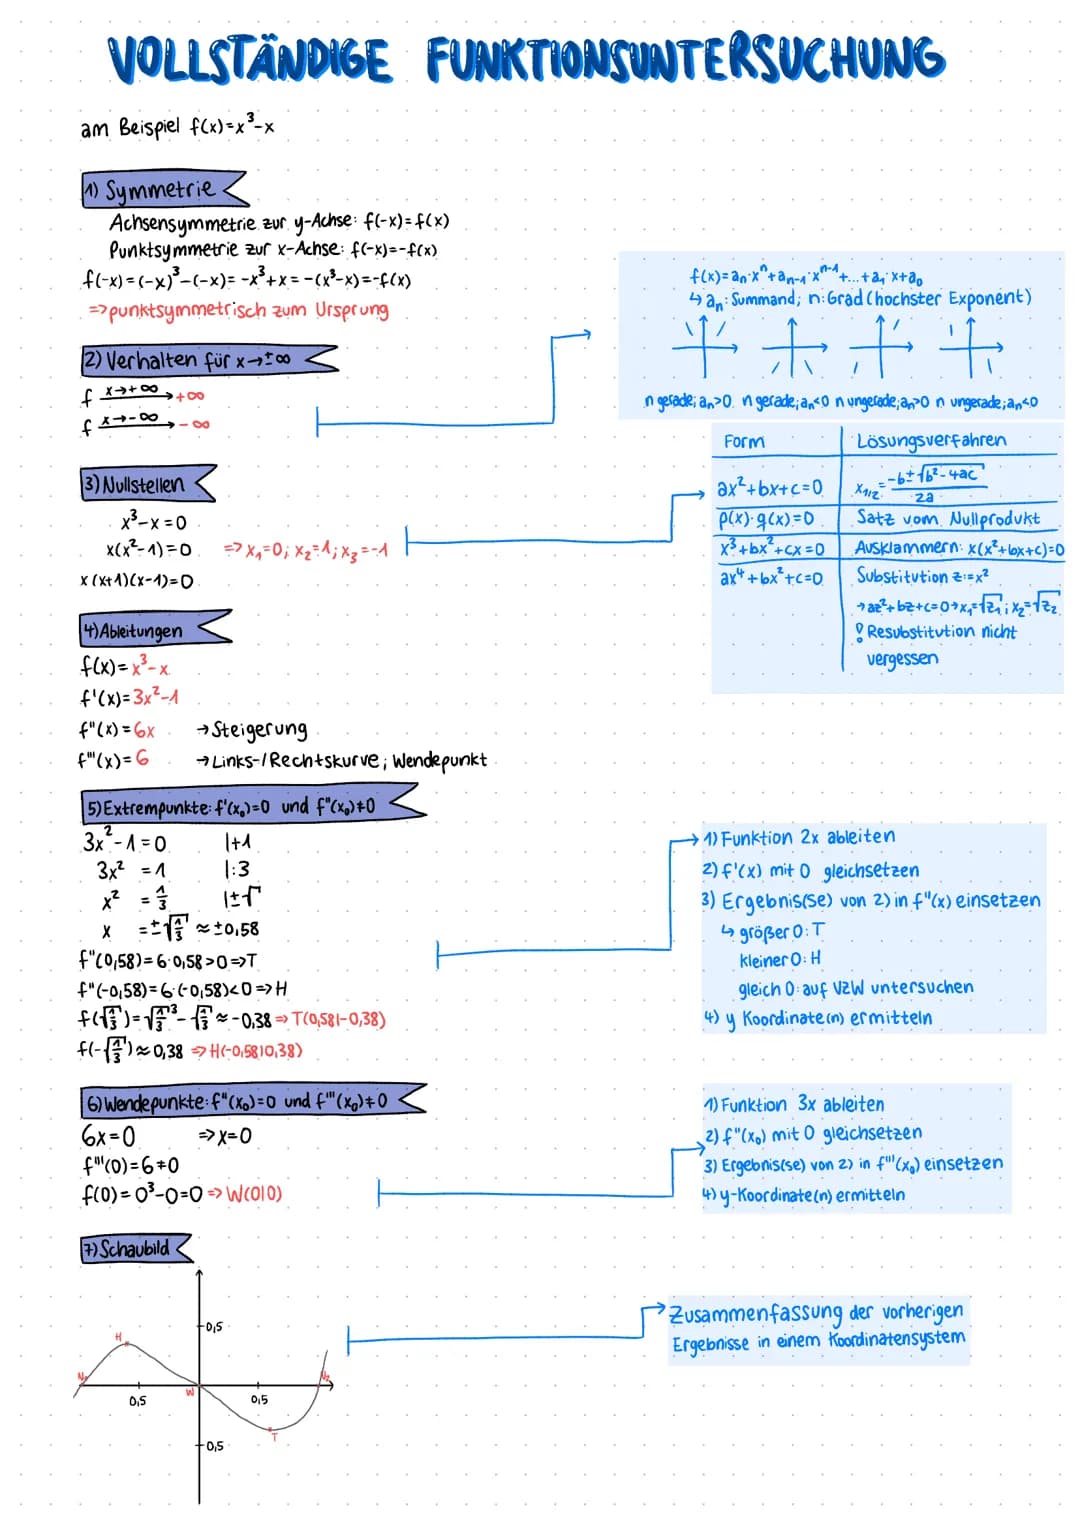 VOLLSTÄNDIGE FUNKTIONSUNTERSUCHUNG
am Beispiel f(x)=x³-x
1) Symmetrie
Achsensymmetrie zur y-Achse: f(-x)=f(x)
Punktsymmetrie zur x-Achse: f(-x)=-f(x)
f(-x)=(-x)³-(-x)= -x³+x= -(x³-x)=-f(x)
=>punktsymmetrisch zum Ursprung
f(x)=aₙ·xⁿ+aₙ₋₁·xⁿ⁻¹+...+a₁·x+a₀
↳ aₙ: Summand; n: Grad (höchster Exponent)
n gerade; aₙ>0 n gerade; aₙ<0 n ungerade; aₙ>0 n ungerade; aₙ<0
2) Verhalten für x→±∞
f x→+∞ → +∞
f x→-∞ → -∞
3) Nullstellen
x³-x=0
x(x²-1)=0 => x₁=0; x₂=1; x₃=-1
x(x+1)(x-1)=0
Form Lösungsverfahren
ax²+bx+c=0 x₁/₂= -b±√b²-4ac / 2a
p(x)·q(x)=0 Satz vom Nullprodukt
x³+bx²+cx=0 Ausklammern: x(x²+bx+c)=0
ax⁴+bx²+c=0 Substitution z:=x²
→az²+bz+c=0→x₁=√z₁; x₂=√z₂
! Resubstitution nicht
vergessen
4) Ableitungen
f(x)=x³-x
f'(x)=3x²-1
f"(x)=6x → Steigerung
f"'(x)=6 → Links-/Rechtskurve; Wendepunkt
5) Extrempunkte: f'(x₀)=0 und f"(x₀)≠0
3x²-1=0 |+1
3x² =1 |:3
x² = 1/3 |±√
x =±√1/3 ≈±0,58
f"(0,58)=6·0,58>0=>T
f"(-0,58)=6·(-0,58)<0=>H
f(√1/3)=√1/3³-√1/3≈-0,38 => T(0,58|-0,38)
f(-√1/3)≈0,38 => H(-0,58|0,38)
1) Funktion 2x ableiten
2) f'(x) mit 0 gleichsetzen
3) Ergebnis(se) von 2) in f"(x) einsetzen
↳ größer 0: T
kleiner 0: H
gleich 0: auf VZW untersuchen
4) y Koordinate(n) ermitteln
6) Wendepunkte: f"(x₀)=0 und f"'(x₀)≠0
6x=0 =>x=0
f"'(0)=6≠0
f(0)=0³-0=0 => W(0|0)
1) Funktion 3x ableiten
2) f"(x₀) mit 0 gleichsetzen
3) Ergebnis(se) von 2) in f"'(x₀) einsetzen
4) y-Koordinate(n) ermitteln
7) Schaubild
Zusammenfassung der vorherigen
Ergebnisse in einem Koordinatensystem
0,5
H
N₂
W
0,5
0,5
T
0,5